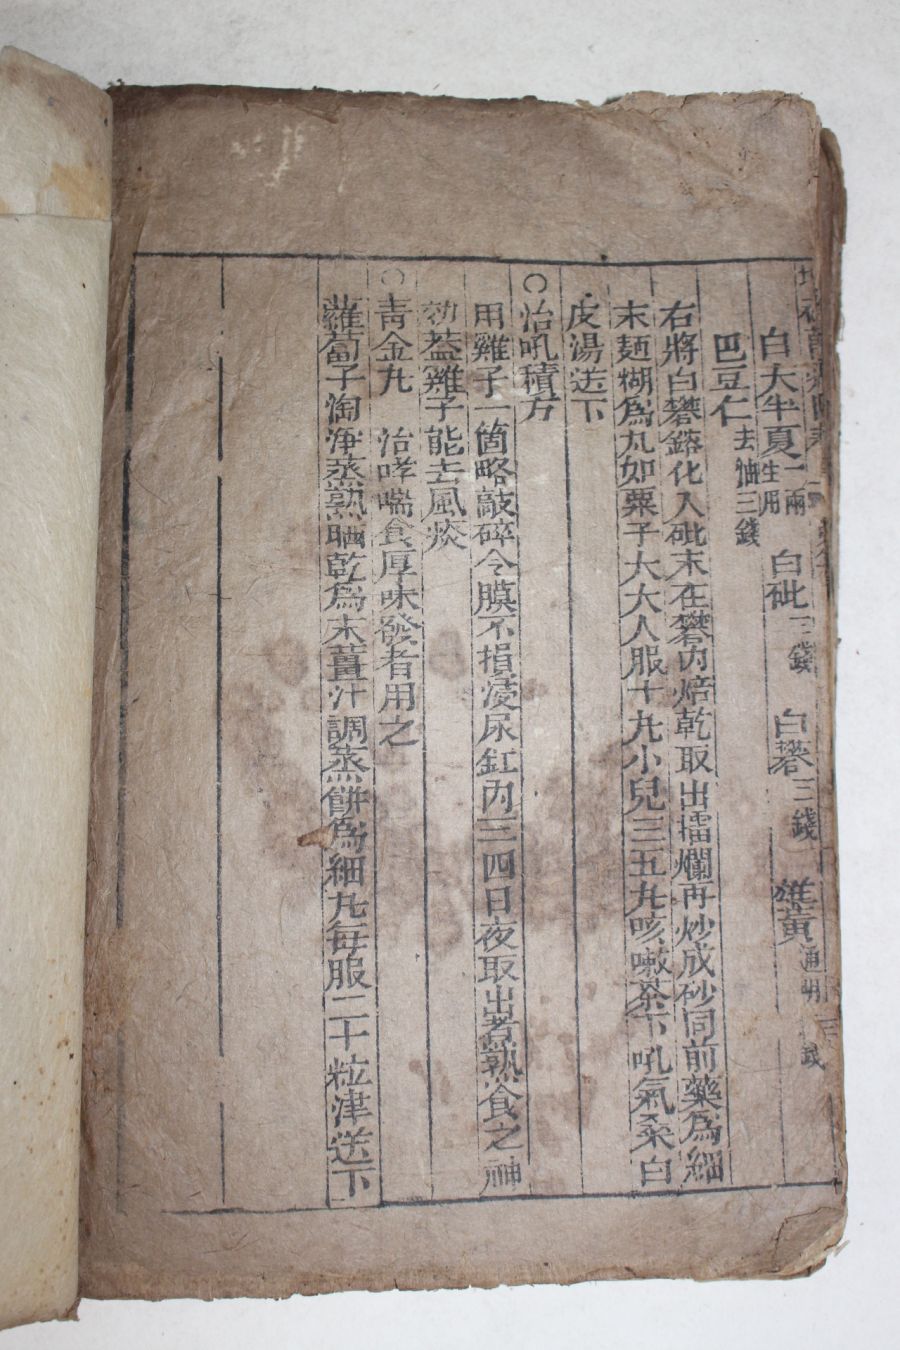 白大半夏一兩生用 白砒三錢 白礬三錢 雄黃通明三錢
巴豆仁去油三錢
右將白礬鎔化入砒末在礬內焙乾取出擂爛再炒成砂同前藥爲細
末麵糊爲丸如粟子大大人服十丸小兒三五丸咳嗽茶下吼氣桑白
皮湯送下
○治吼積方
用雞子一箇略敲碎令膜不損浸尿缸內三四日夜取出煮熟食之神
効葢雞子能去風痰
○靑金丸 治哮喘食厚味發者用之
蘿蔔子淘淨蒸熟晒乾爲末薑汁調蒸餅爲細丸每服三十粒津送下